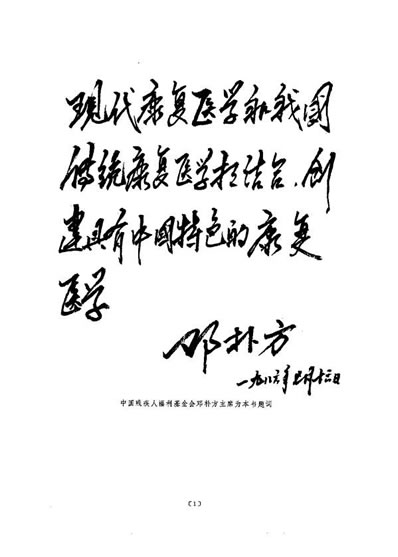 现代康复医学和我國
传统康复医学相结合，创
建具有中國特色的康复
医学
邓朴方
一九八六年 月十二日
中国残疾人福利基金会邓朴方主席为本书题词
(1)